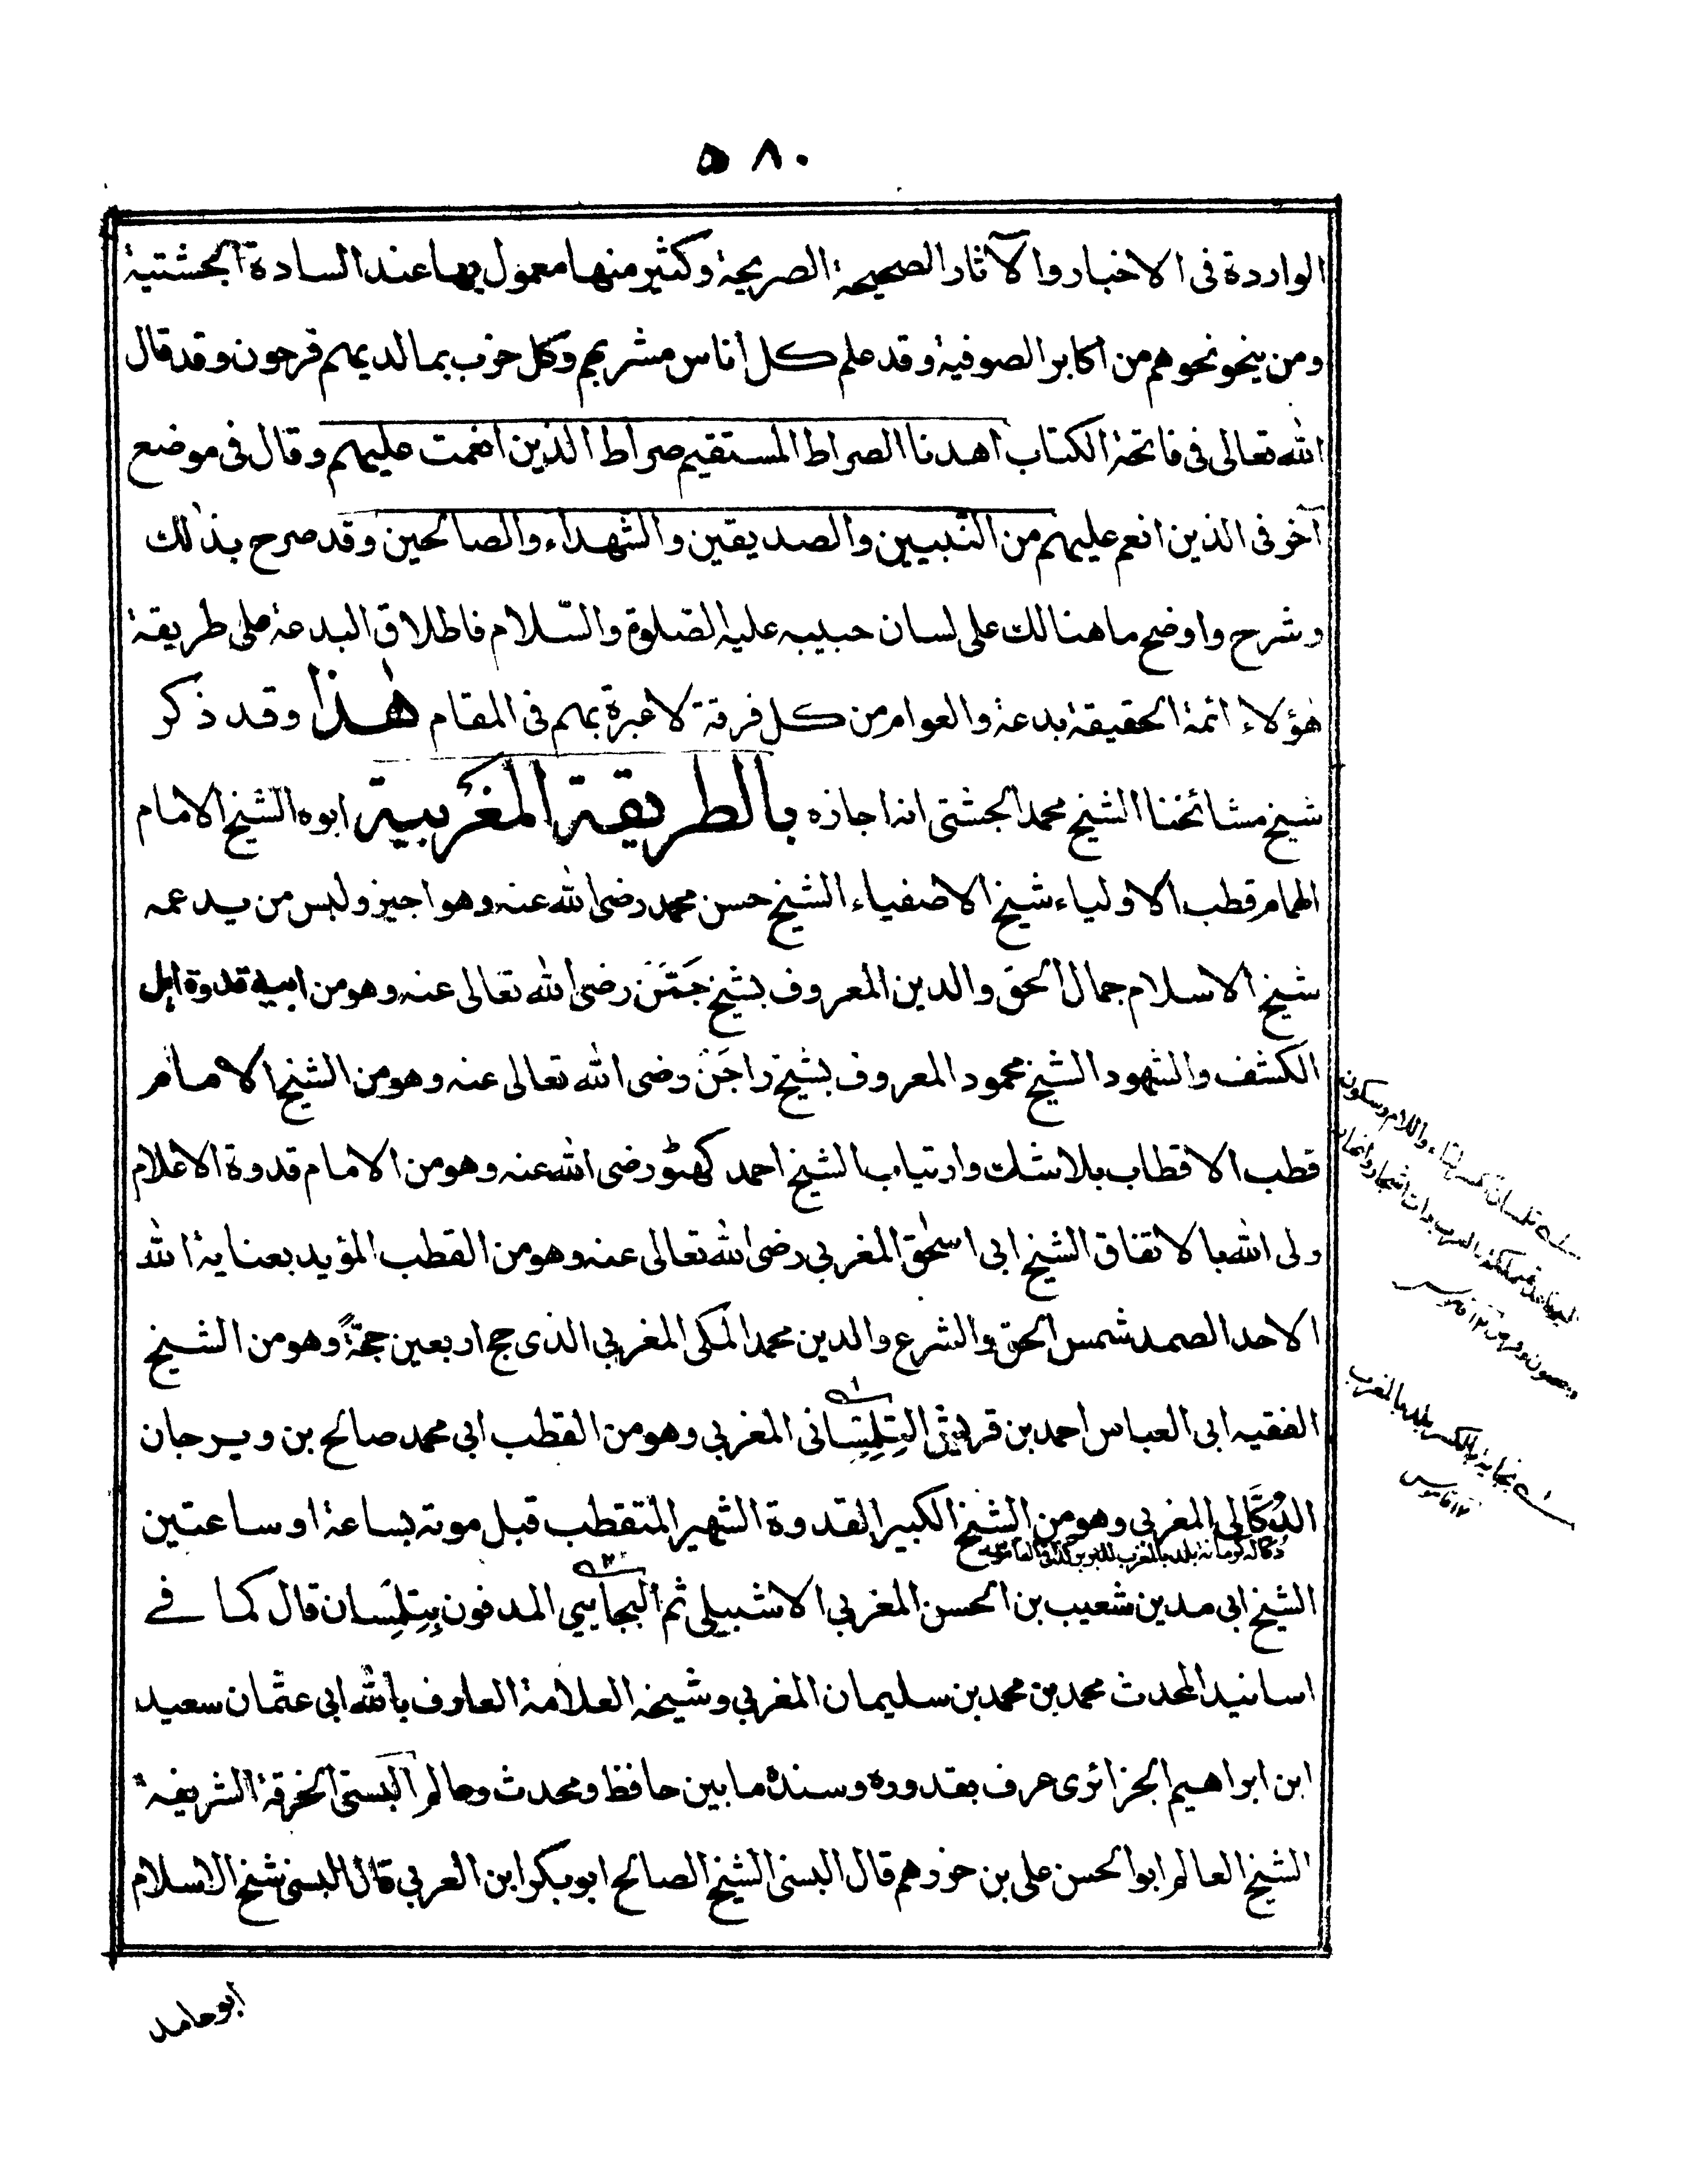 ٥٨٠
الواردة فى الاخبار والآثار الصحيحة الصريحة وكثير منها معمول بها عند السادة الجشتية
ومن ينحو نحوهم من اكابر الصوفية وقد علم كل اناس مشربهم وكل حزب بما لديهم فرحون وقد قال
الله تعالى فى فاتحة الكتاب اهدنا الصراط المستقيم صراط الذين انعمت عليهم وقال فى موضع
آخر فى الذين انعم عليهم من النبيين والصديقين والشهداء والصالحين وقد صرح بذلك
وشرح واوضح ما هنالك على لسان حبيبه عليه الصلوة والسّلام فاطلاق البدعة على طريقة
هٰؤلاء ائمة الحقيقة بدعة والعوام من كل فرقة لا عبرة بهم فى المقام هٰذا وقد ذكر
شيخ مشائخنا الشيخ محمد الجشتى انه اجازه بالطريقة المغربية ابوه الشيخ الامام
الهمام قطب الاولياء شيخ الاصفياء الشيخ حسن محمد رضى الله عنه وهو اجيز ولبس من يد عمه
شيخ الاسلام جمال الحق والدين المعروف بشيخ جَمَّنْ رضى الله تعالى عنه وهو من ابيه قدوة اهل
الكشف والشهود الشيخ محمود المعروف بشيخ راجَنْ رضى الله تعالى عنه وهو من الشيخ الامام
قطب الاقطاب بلا شك وارتياب الشيخ احمد كهٹو رضى الله عنه وهو من الامام قدوة الاعلام
ولى الله بالاتفاق الشيخ ابى اسحٰق المغربى رضى الله تعالى عنه وهو من القطب المؤيد بعناية الله
الاحد الصمد شمس الحق والشرع والدين محمد المكى المغربي الذى حج اربعين حجّةً وهو من الشيخ
الفقيه ابى العباس احمد بن قريش التِلِمْسانى المغربي وهو من القطب ابى محمد صالح بن ويرجان
الدُكَّالى المغربي وهو من الشيخ الكبير القدوة الشهير المتقطب قبل موته بساعة او ساعتين
دكالة كرمانة بلد بالمغرب للبربر
الشيخ ابى مدين شعيب بن الحسن المغربي الاشبيلى ثم البجاييي المدفون بِتِلِمْسان قال كما فے
اسانيد المحدث محمد بن محمد بن سليمان المغربي وشيخه العلامة العارف بالله ابى عثمان سعيد
ابن ابراهيم الجزائرى عرف بقدوره وسنده ما بين حافظ ومحدث وعالم البستى الخرقة الشريفة
الشيخ العالم ابوالحسن على بن حرزهم قال البسنى الشيخ الصالح ابوبكر ابن العربي قال البسنى شيخ الاسلام
ابو حامد
تلمسان بكسر التاء واللام وسكون
ذات اشجار وانهار
١٢ قاموس
بجاية بالكسر بلد بالمغرب
١٢ قاموس